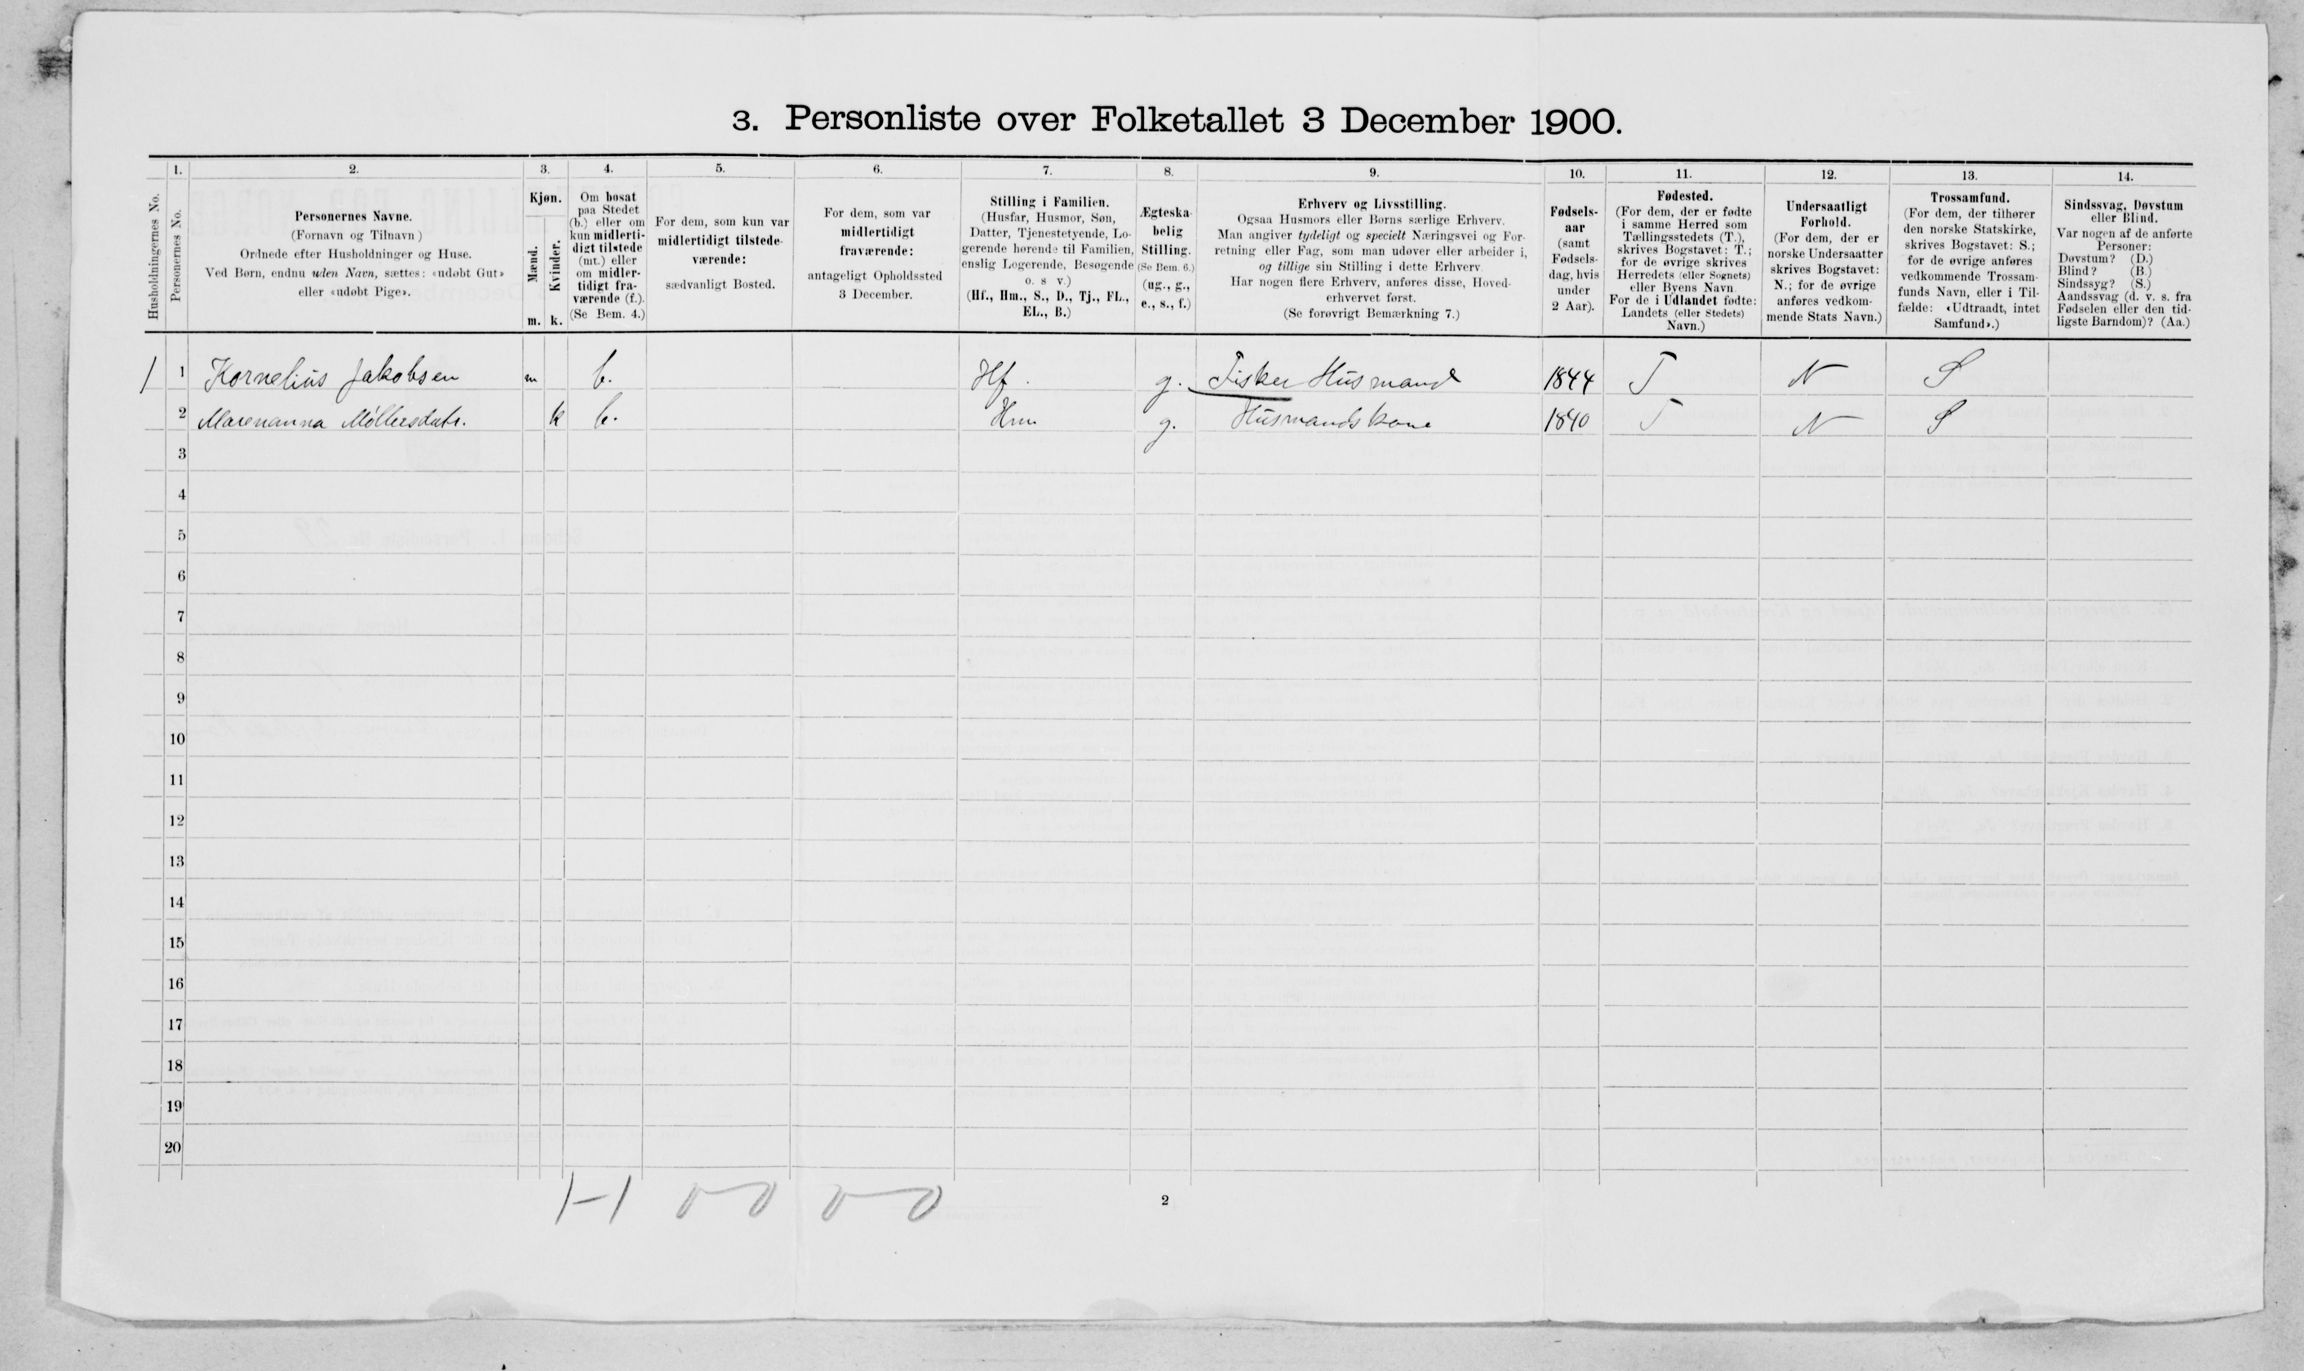 3. Personliste over Folketallet 3 December 1900.
1. 2. 3. 4. 5. 6. 7. 8. 9. 10. 11. 12. 13. 14.
Husholdningernes No.
Personernes No.
Personernes Navne.
(Fornavn og Tilnavn)
Ordnede efter Husholdninger og Huse.
Ved Børn, endnu uden Navn, sættes: «udøbt Gut»
eller «udøbt Pige».
Kjøn.
Mænd.
Kvinder.
m. k.
Om bosat
paa Stedet
(b.) eller om
kun midlerti-
digt tilstede
(mt.) eller
om midler-
tidigt fra-
værende (f.).
(Se Bem. 4.)
For dem, som kun var
midlertidigt tilstede-
værende:
sædvanligt Bosted.
For dem, som var
midlertidigt
fraværende:
antageligt Opholdssted
3 December.
Stilling i Familien.
(Husfar, Husmor, Søn,
Datter, Tjenestetyende, Lo-
gerende hørende til Familien,
enslig Logerende, Besøgende
o. s v.)
(Hf., Hm., S., D., Tj., FL.,
EL., B.)
Ægteska-
belig
Stilling.
(Se Bem. 6.)
(ug., g.,
e., s., f.)
Erhverv og Livsstilling.
Ogsaa Husmors eller Børns særlige Erhverv.
Man angiver tydeligt og specielt Næringsvei og For-
retning eller Fag, som man udøver eller arbeider i,
og tillige sin Stilling i dette Erhverv.
Har nogen flere Erhverv, anføres disse, Hoved-
erhvervet først.
(Se forøvrigt Bemærkning 7.)
Fødsels-
aar
(samt
Fødsels-
dag, hvis
under
2 Aar).
Fødested.
(For dem, der er fødte
i samme Herred som
Tællingsstedets (T.),
skrives Bogstavet: T.;
for de øvrige skrives
Herredets (eller Sognets)
eller Byens Navn
For de i Udlandet fødte:
Landets (eller Stedets)
Navn.)
Undersaatligt
Forhold.
(For dem, der er
norske Undersaatter
skrives Bogstavet:
N.; for de øvrige
anføres vedkom-
mende Stats Navn.)
Trossamfund.
(For dem, der tilhører
den norske Statskirke,
skrives Bogstavet: S.;
for de øvrige anføres
vedkommende Trossam-
funds Navn, eller i Til-
fælde: «Udtraadt, intet
Samfund».)
Sindssvag, Døvstum
eller Blind.
Var nogen af de anførte
Personer:
Døvstum? (D.)
Blind? (B.)
Sindssyg? (S.)
Aandssvag (d. v. s. fra
Fødselen eller den tid-
ligste Barndom)? (Aa.)
1 1 Kornelius Jakobsen m b. Hf. g. Fisker Husmand 1844 T N S
2 Marenanna Møllersdatr. k b. Hm g. Husmandskone 1840 T N S
3
4
5
6
7
8
9
10
11
12
13
14
15
16
17
18
19
20
1-1 0 0 0 0
2